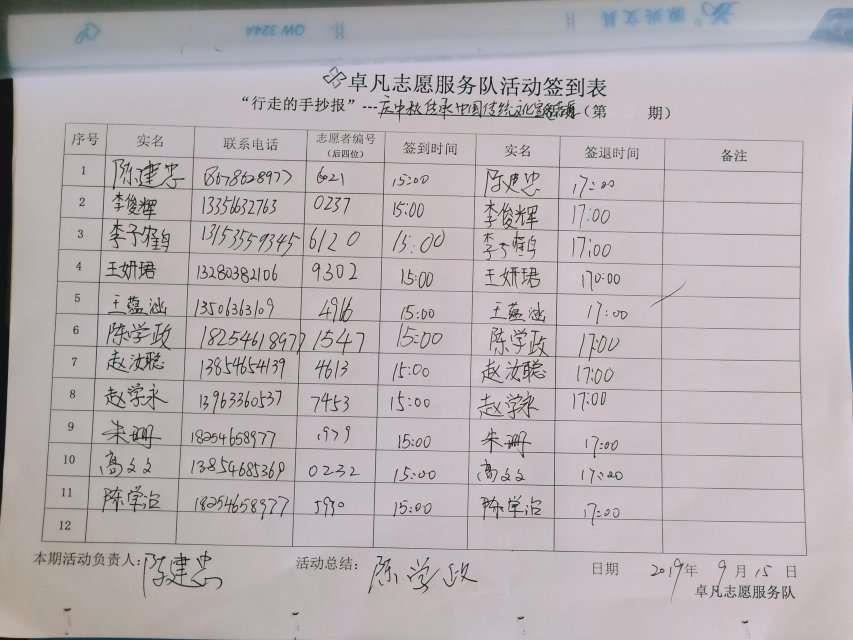 QW 324A
卓凡志愿服务队活动签到表
“行走的手抄报”---庆中秋传承中国传统文化 (第 期)
序号 实名 联系电话 志愿者编号(后四位) 签到时间 实名 签退时间 备注
1 陈建忠 18678628977 6021 15:00 陈建忠 17:00
2 李俊辉 13351632763 0237 15:00 李俊辉 17:00
3 李子鹤 13153559345 6120 15:00 李子鹤 17:00
4 王妍珺 13280382106 9302 15:00 王妍珺 170:00
5 王蕴涵 13506363109 4916 15:00 王蕴涵 17:00
6 陈学政 18254618977 1547 15:00 陈学政 17:00
7 赵汝聪 13854654139 4613 15:00 赵汝聪 17:00
8 赵学永 13963360537 7453 15:00 赵学永 17:00
9 朱珊 18254658977 1979 15:00 朱珊 17:00
10 高文文 13854685369 0232 15:00 高文文 17:00
11 陈学治 18254658977 5930 15:00 陈学治 17:00
12
本期活动负责人: 陈建忠 活动总结: 陈学政 日期 2019年 9月 15日
卓凡志愿服务队